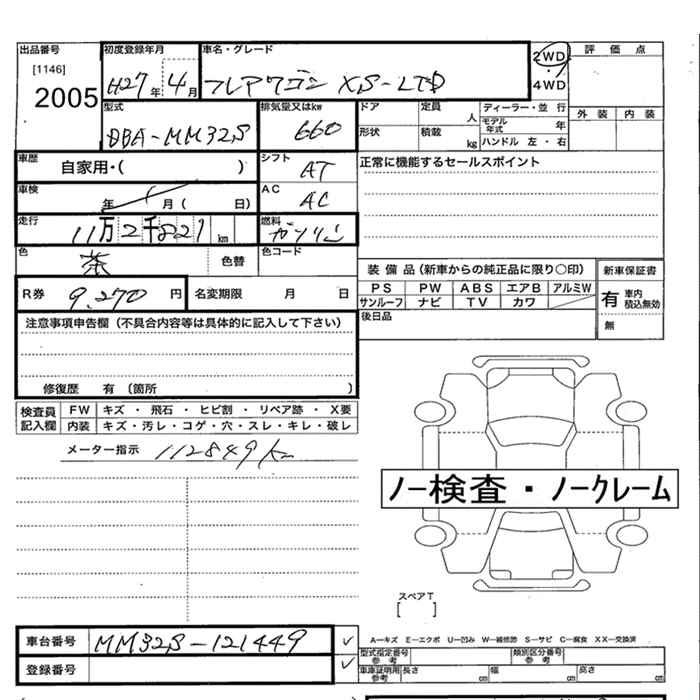 出品番号 初度登録年月 車名・グレード 2WD 評価点
[1146] 2005 H27年 4月 フレアワゴン XS-LTD 4WD
型式 排気量又はkw ドア 定員 人 ディーラー・並行 外装 内装
DBA-MM32S 660 形状 積載 kg モデル年式 年 ハンドル 左・右
車歴 自家用・( ) シフト AT 正常に機能するセールスポイント
車検 年 月 ( 日) AC AC
走行 11万2千821km 燃料 ガソリン
色 茶 色替 色コード
装備品(新車からの純正品に限り○印) 新車保証書
R券 9,270円 名変期限 月 日 PS PW ABS エアB アルミW 有 車内積込無効
サンルーフ ナビ TV カワ
注意事項申告欄(不具合内容等は具体的に記入して下さい) 後日品 無
修復歴 有 (箇所 )
検査員記入欄 FW キズ・飛石・ヒビ割・リペア跡・X要
内装 キズ・汚レ・コゲ・穴・スレ・キレ・破レ
メーター指示 112849km
ノー検査・ノークレーム
スペアT
[ ]
車台番号 MM32S-121449 ✓ A―キズ E―エクボ U―凹み W―補修跡 S―サビ C―腐食 XX―交換済
型式指定番号 参考 類別区分番号 参考
登録番号 ✓ 車庫証明用 参考 長さ cm 幅 cm 高さ cm